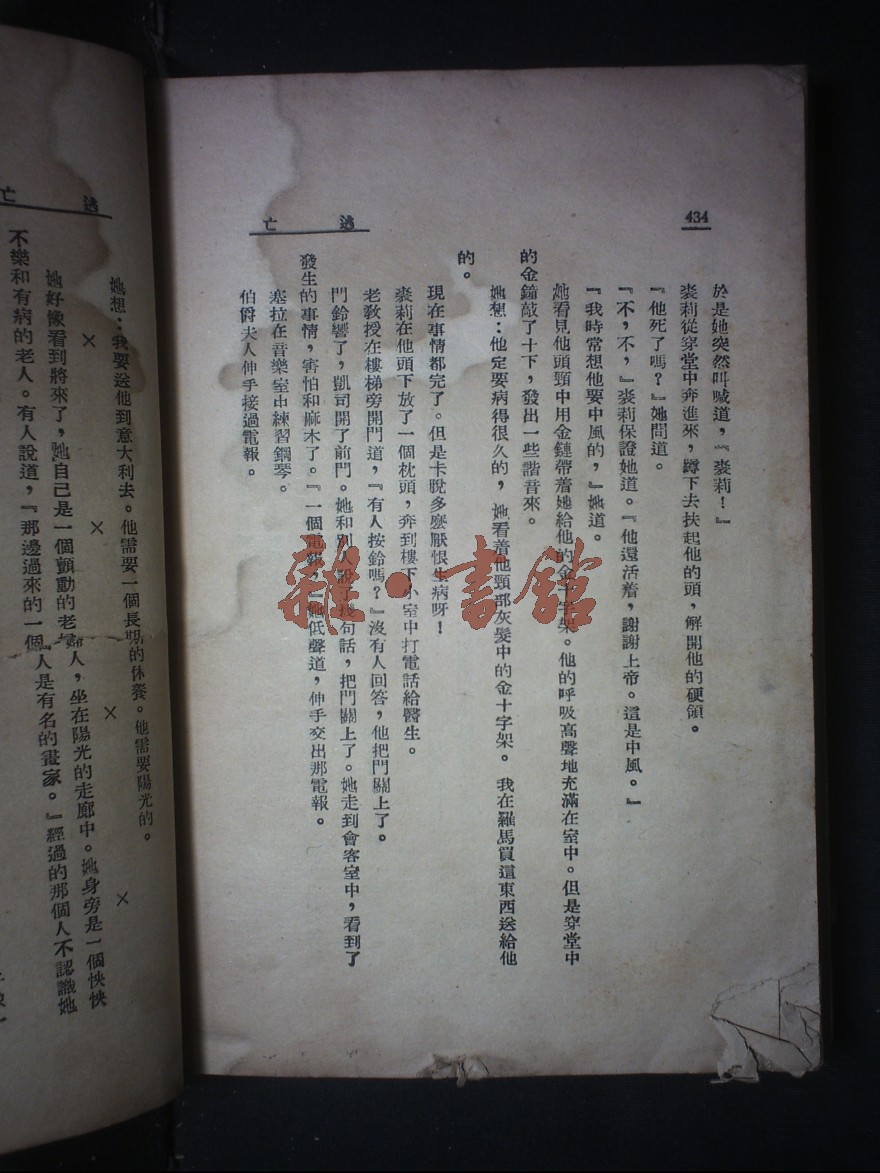 434
逃亡
於是她突然叫喊道，『裘莉！』
裘莉從穿堂中奔進來，蹲下去扶起他的頭，解開他的硬領。
『他死了嗎？』她問道。
『不，不，』裘莉保證她道。『他還活着，謝謝上帝。這是中風。』
『我時常想他要中風的，』她道。
她看見他頭頸中用金鏈帶着她給他的金十字架。他的呼吸高聲地充滿在室中。但是穿堂中
的金鐘敲了十下，發出一些諧音來。
她想：他定要病得很久的，她看着他頸部灰髮中的金十字架。我在羅馬買這東西送給他
的。
現在事情都完了。但是卡脫多麽厭恨生病呀！
裘莉在他頭下放了一個枕頭，奔到樓下小室中打電話給醫生。
老教授在樓梯旁開門道，『有人按鈴嗎？』沒有人回答，他把門關上了。
門鈴響了，凱司開了前門。她和別人說了幾句話，把門關上了。她走到會客室中，看到了
發生的事情，害怕和麻木了。『一個電報，』她低聲道，伸手交出那電報。
塞拉在音樂室中練習鋼琴。
伯爵夫人伸手接過電報。
雜·書館
逃亡
她想：我要送他到意大利去。他需要一個長期的休養。他需要陽光的。
× × × ×
她好像看到將來了，她自己是一個顫動的老婦人，坐在陽光的走廊中。她身旁是一個怏怏
不樂和有病的老人。有人說道，『那邊過來的一個『人是有名的畫家。』經過的那個人不認識她